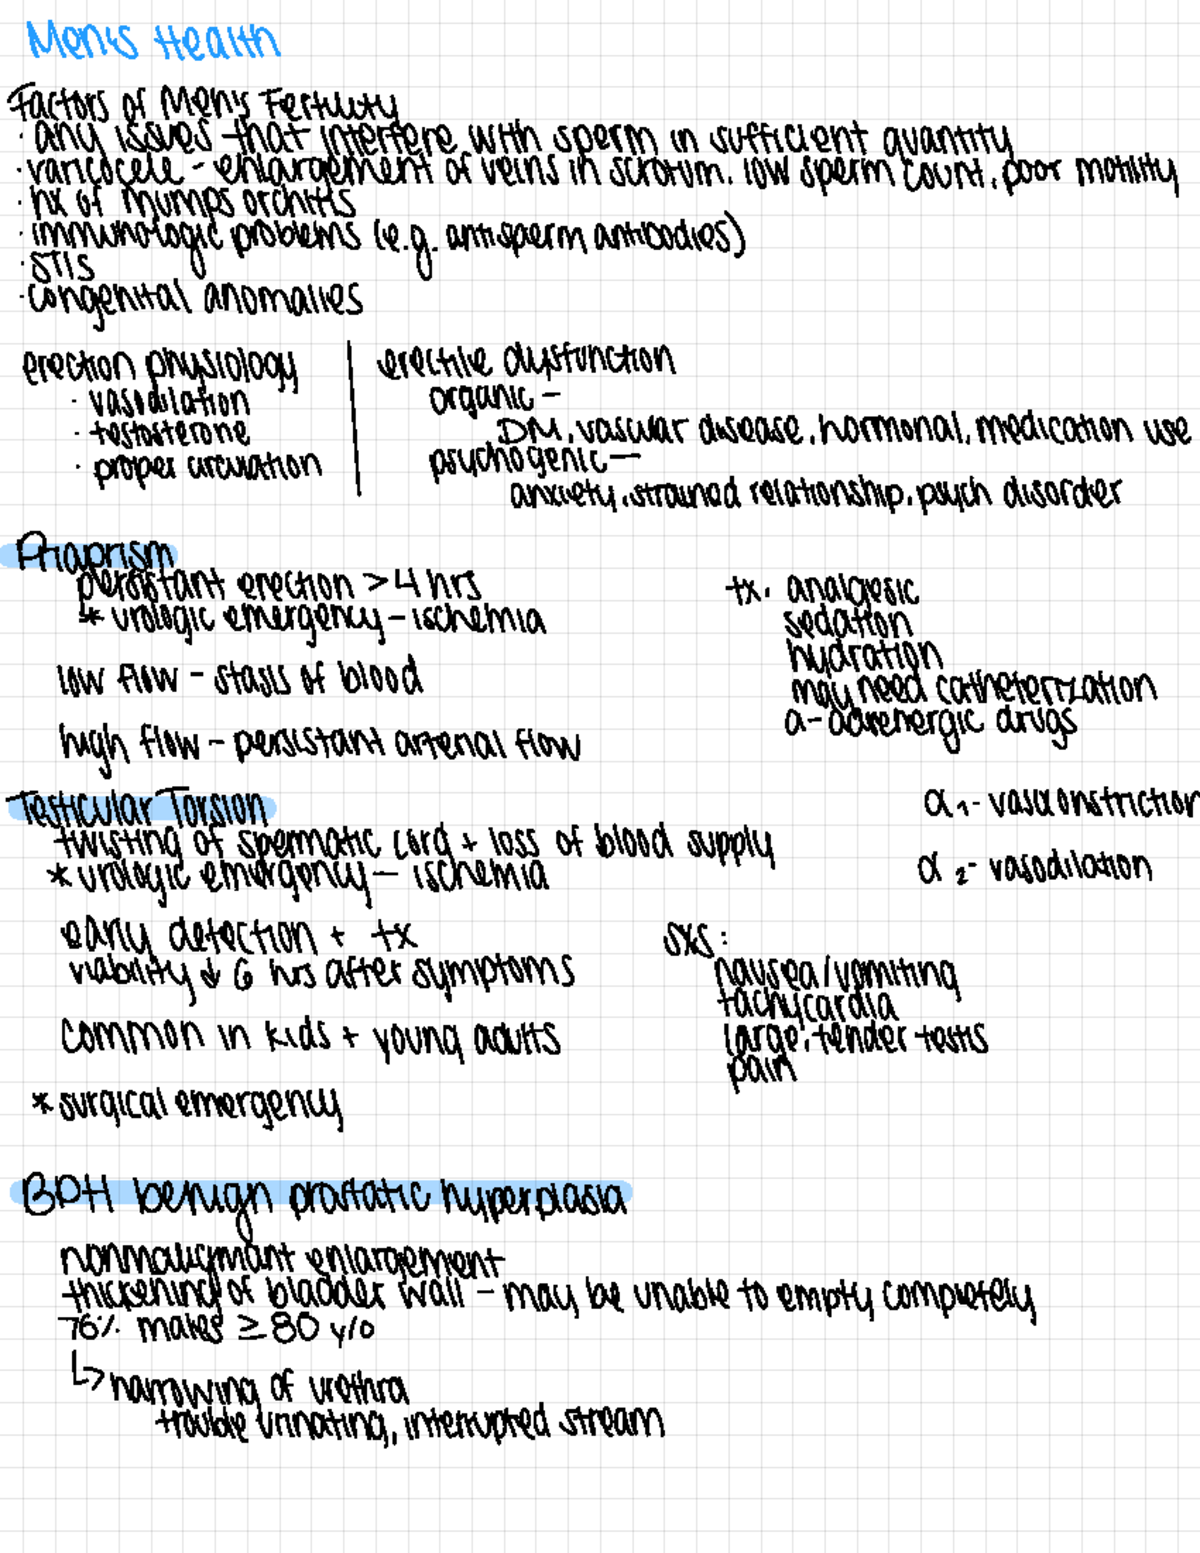 Men's Health
Factors of Men's Fertility
· any issues that interfere with sperm in sufficient quantity
· varicocele - enlargement of veins in scrotum. low sperm count, poor motility
· hx of mumps orchitis
· immunologic problems (e.g. antisperm antibodies)
· STIs
· congenital anomalies
erection physiology
· vasodilation
· testosterone
· proper circulation
erectile dysfunction
organic -
DM, vascular disease, hormonal, medication use
psychogenic -
anxiety, strained relationship, psych disorder
Priaprism
persistant erection > 4 hrs
↳* urologic emergency - ischemia
low flow - stasis of blood
high flow - persistant arterial flow
tx. analgesic
sedation
hydration
may need catheterization
a-adrenergic drugs
α1 - vasoconstriction
α2 - vasodilation
Testicular Torsion
twisting of spermatic cord + loss of blood supply
* urologic emergency - ischemia
early detection + tx
viability ↓ 6 hrs after symptoms
common in kids + young adults
* surgical emergency
sxs:
nausea/vomiting
tachycardia
large, tender testis
pain
BPH benign prostatic hyperplasia
nonmaligmant enlargement
thickening of bladder wall - may be unable to empty completely
76% males ≥ 80 y/o
↳ narrowing of urethra
trouble urinating, interrupted stream